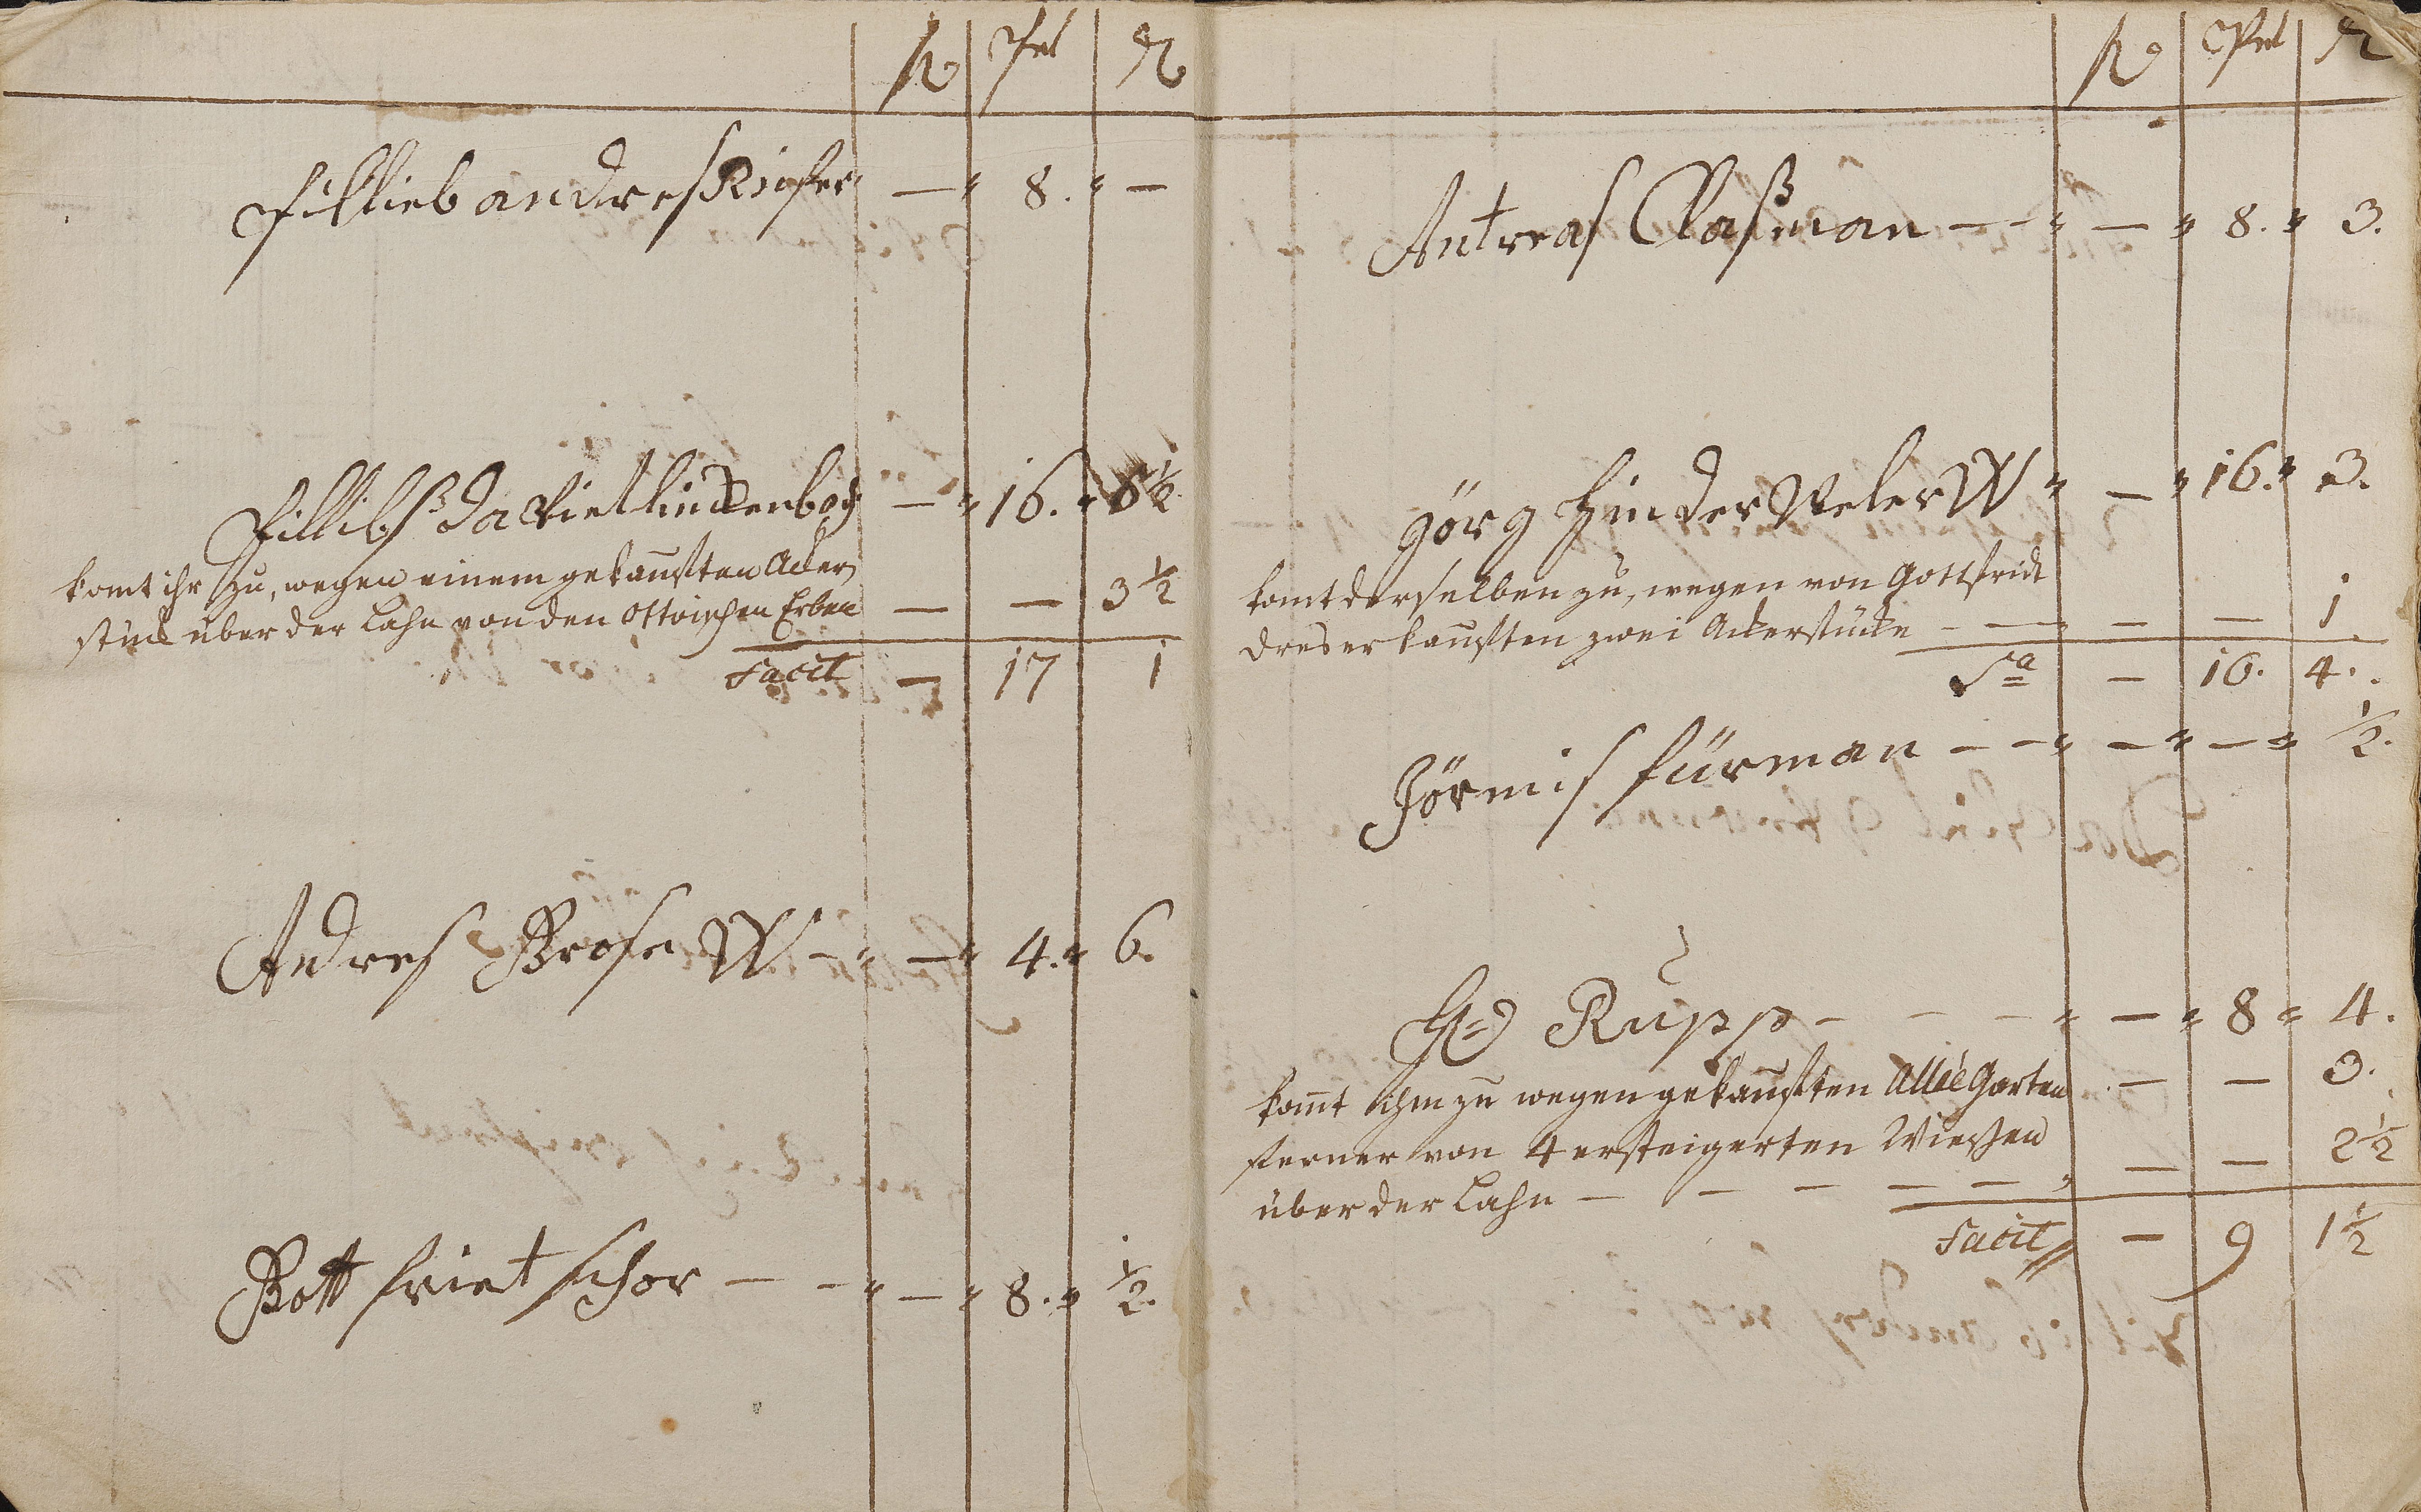 fl Pfel H
Fillieb andres Kiefer — 8. —
Fillibs Daviet linckenboch — 16. 6½
komt ihr zu, wegen einem gekaufften Acker
stück über der Lahn von den Ottoischen Erben — — 3½
Facit — 17 1
Andres Grose W — — 4. 6.
Gott friet schor — — — 8. ½.
fl Pfel H
Antreas Claßman — — — 8. 3.
görg hinder Meler W — 16. 3.
komt derselben zu, wegen von Gottfridt
Dres erkaufften zwei Ackerstücke — — — — 1
Sa — 16. 4.
Jörmis fürman — — — — ½.
Rupp — — — — 8 4.
komt ihm zu wegen gekaufften Alleé Garten — — 3.
ferner von 4 ersteigerten Wießen
über der Lahn — — — — — — — 2½
Facit — 9 1½